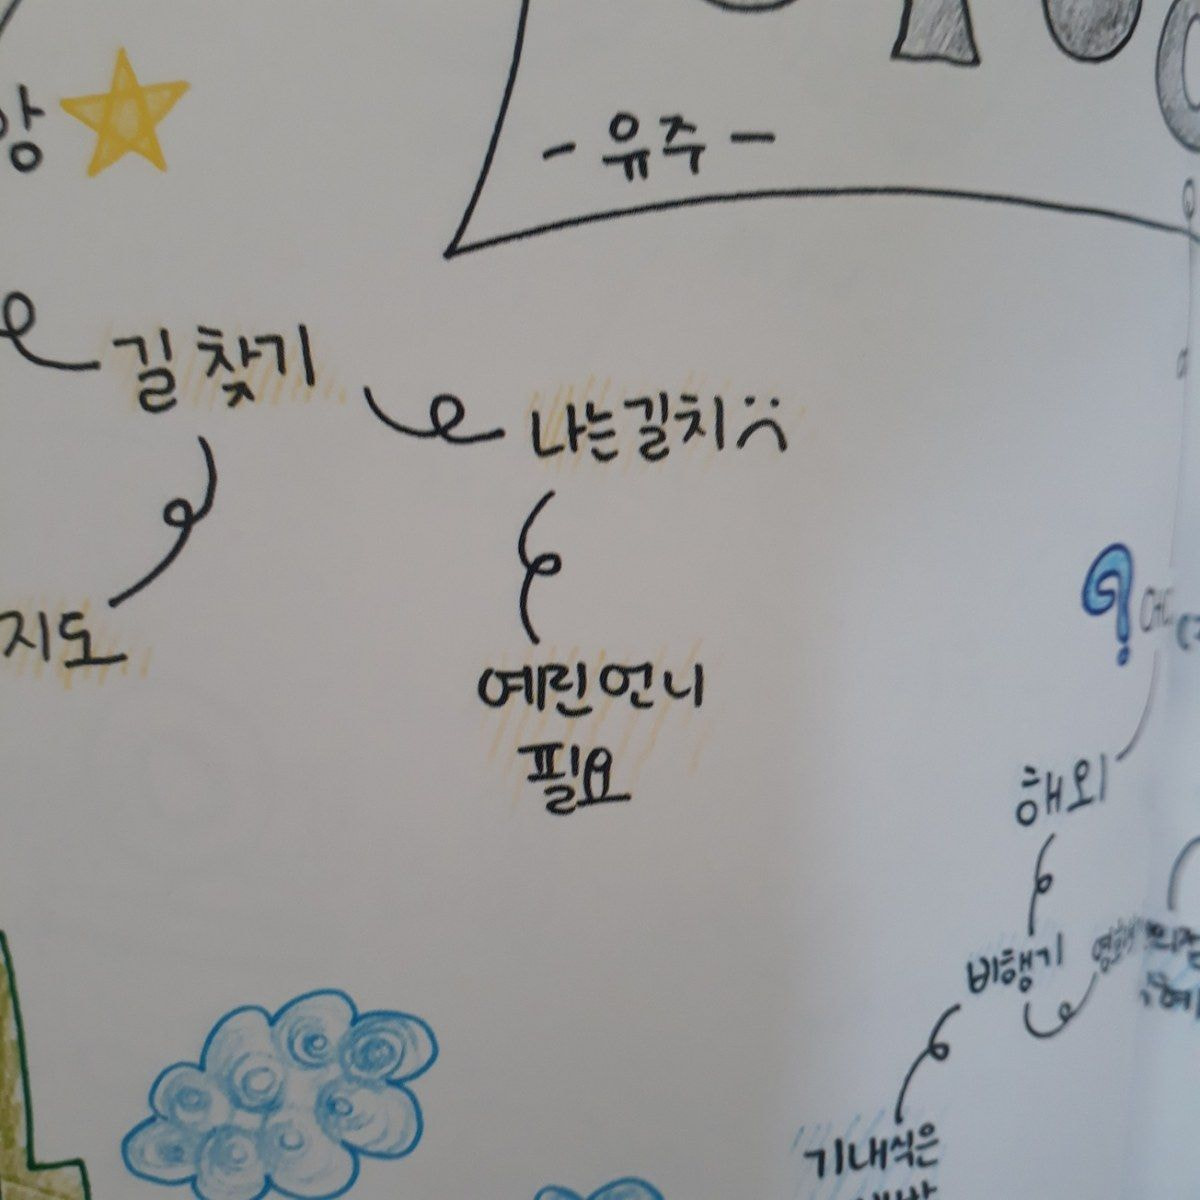 - 유주 -
길 찾기
나는 길치
지도
예린 언니
필요
해외
비행기
기내식은